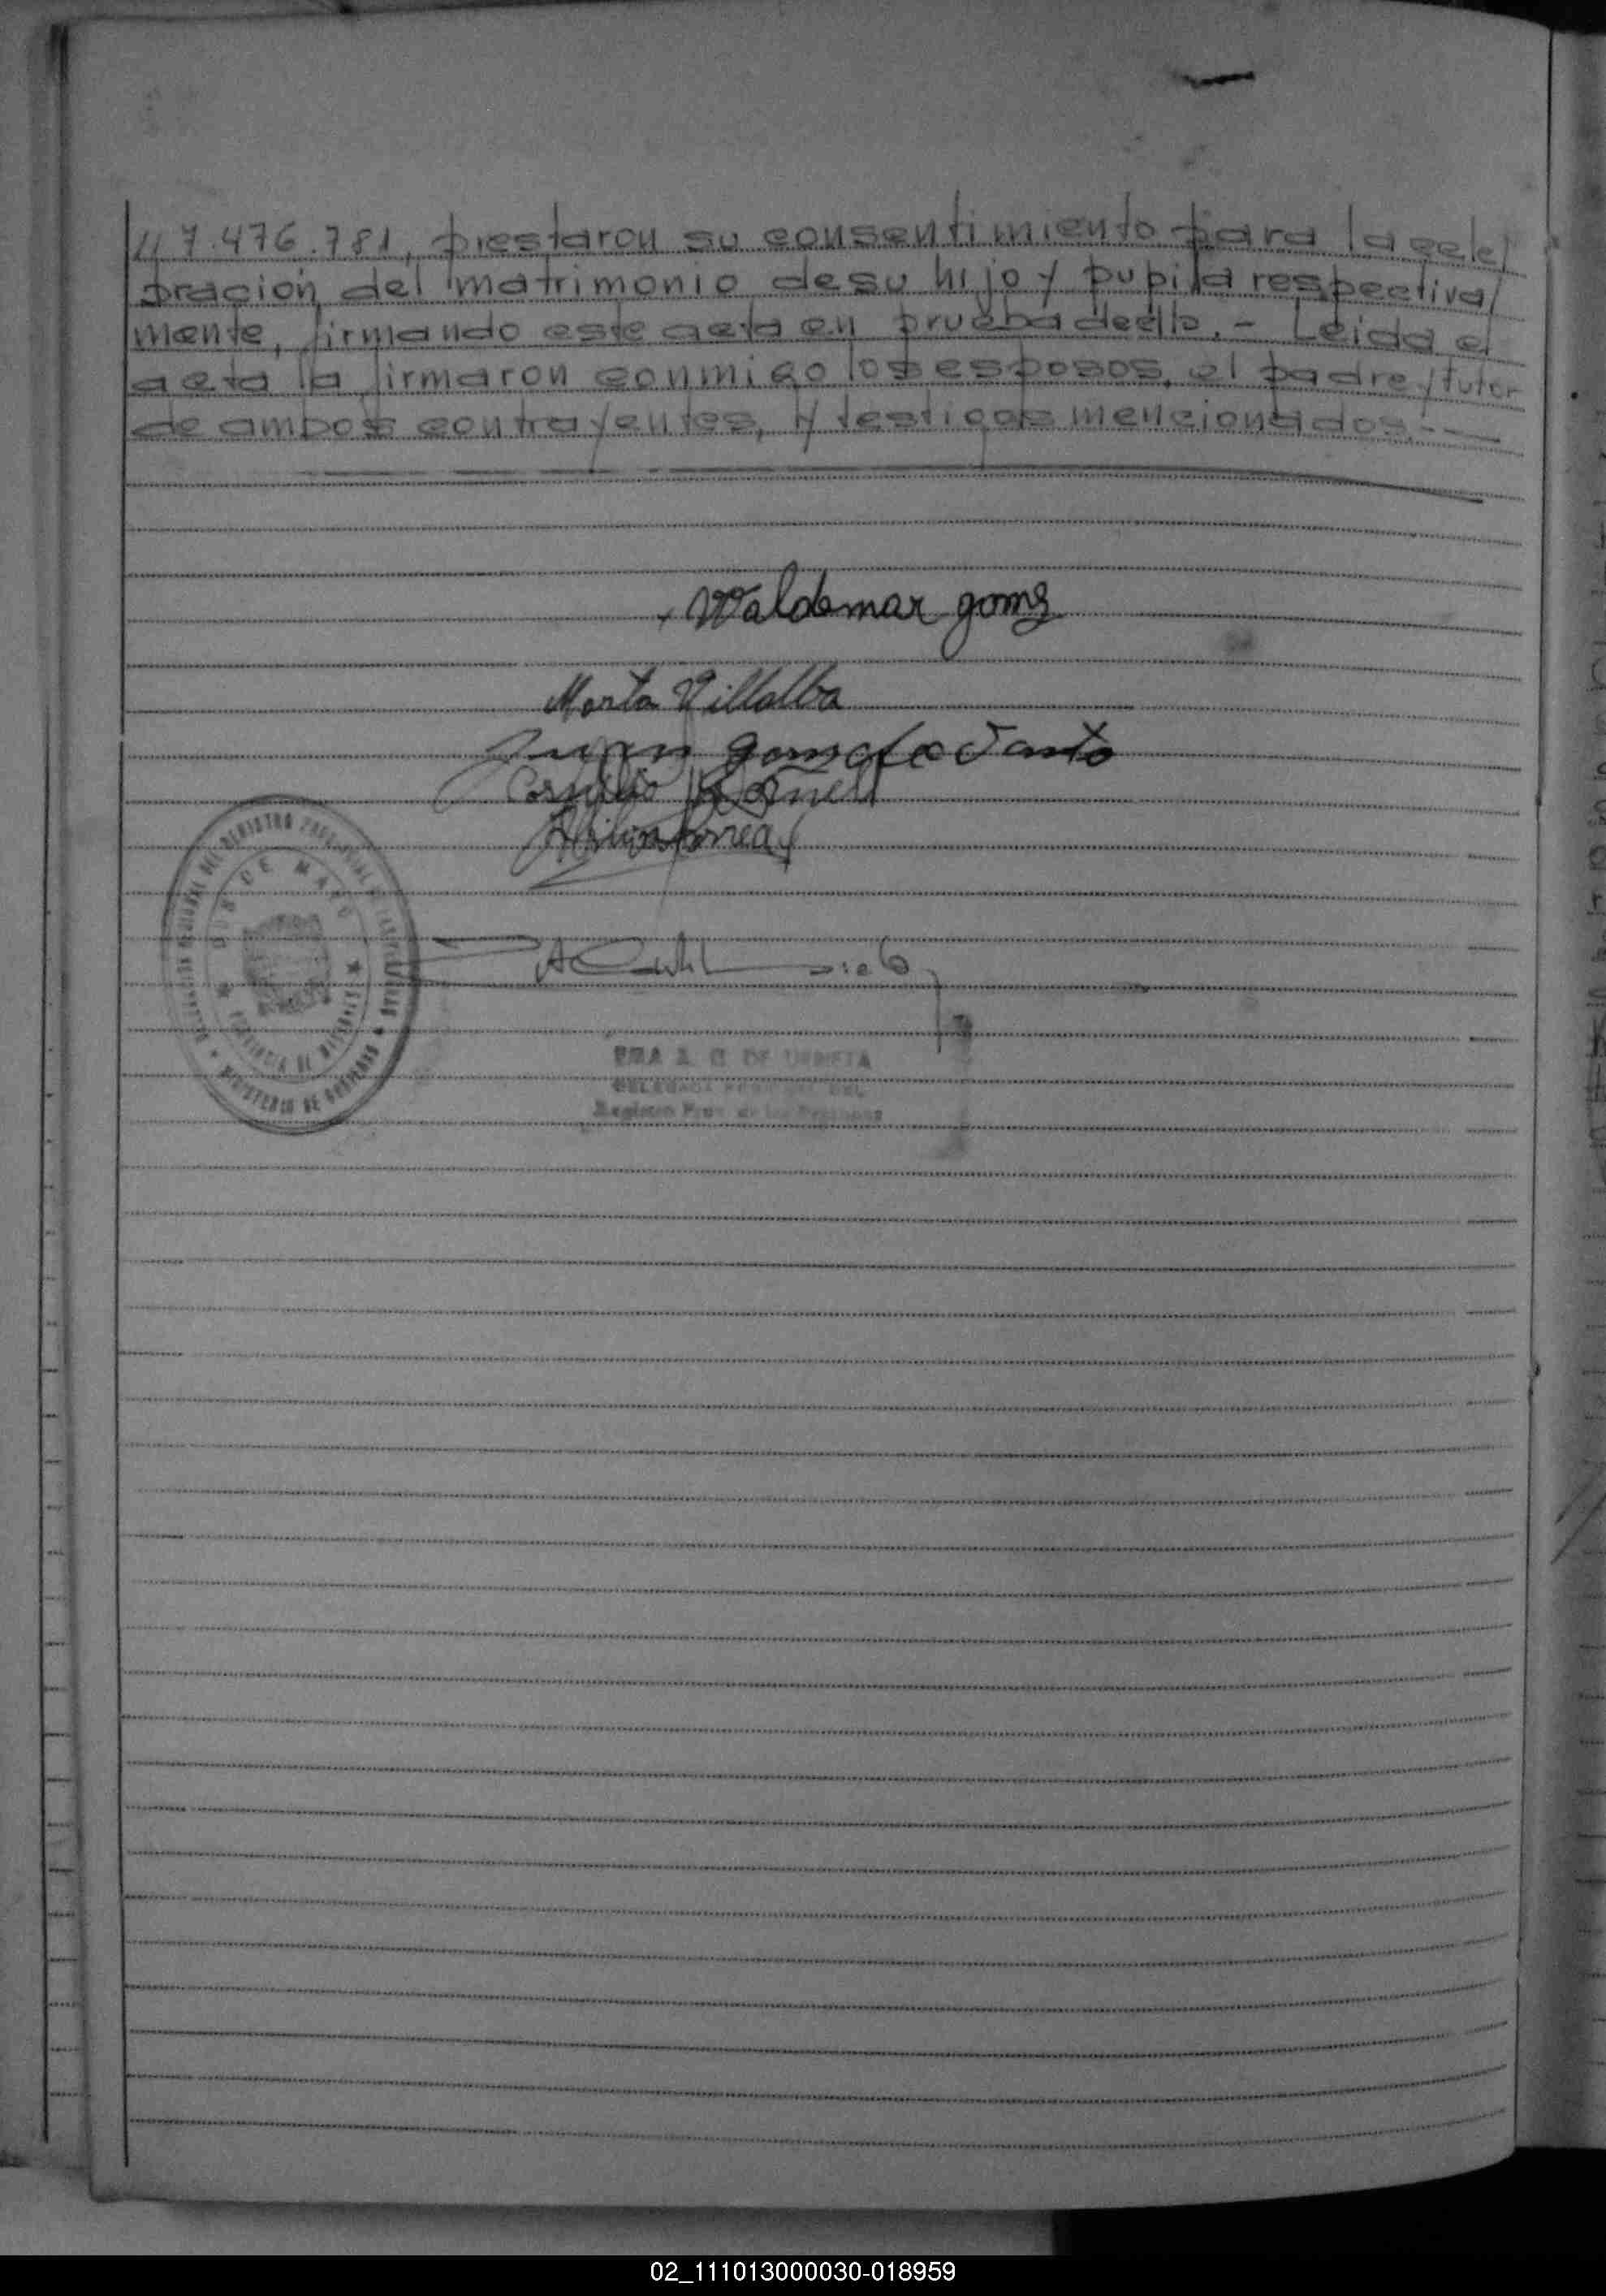 // 7.476.781, prestaron su consentimiento para la cele/
bración del matrimonio de su hijo y pupila respectiva/
mente, firmando este acta en prueba de ello.- Leida el
acta la firmaron conmigo los esposos, el padre y tutor
de ambos contrayentes, y testigos mencionados.-
Waldemar goms
Marta Villalba
Juan gomes
Correa
DOS DE MAYO
PROVINCIA DE MISIONES
MINISTERIO DE GOBIERNO
DE URRETA
Registro Prov. de las Personas
02_111013000030-018959